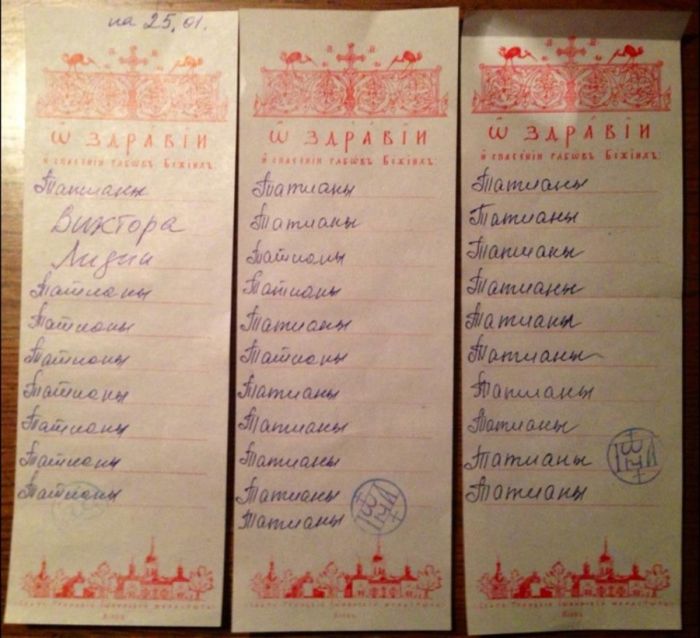 на 25.01.
Ѿ ЗДРАВІИ
и спасеніи рабѡвъ Божіихъ:
Татианы
Виктора
Лидии
Татианы
Татианы
Татианы
Татианы
Татианы
Татианы
Татианы
Ѿ ЗДРАВІИ
и спасеніи рабѡвъ Божіихъ:
Татианы
Татианы
Татианы
Татианы
Татианы
Татианы
Татианы
Татианы
Татианы
Татианы
Татианы
Ѿ ЗДРАВІИ
и спасеніи рабѡвъ Божіихъ:
Татианы
Татианы
Татианы
Татианы
Татианы
Татианы
Татианы
Татианы
Татианы
Татианы